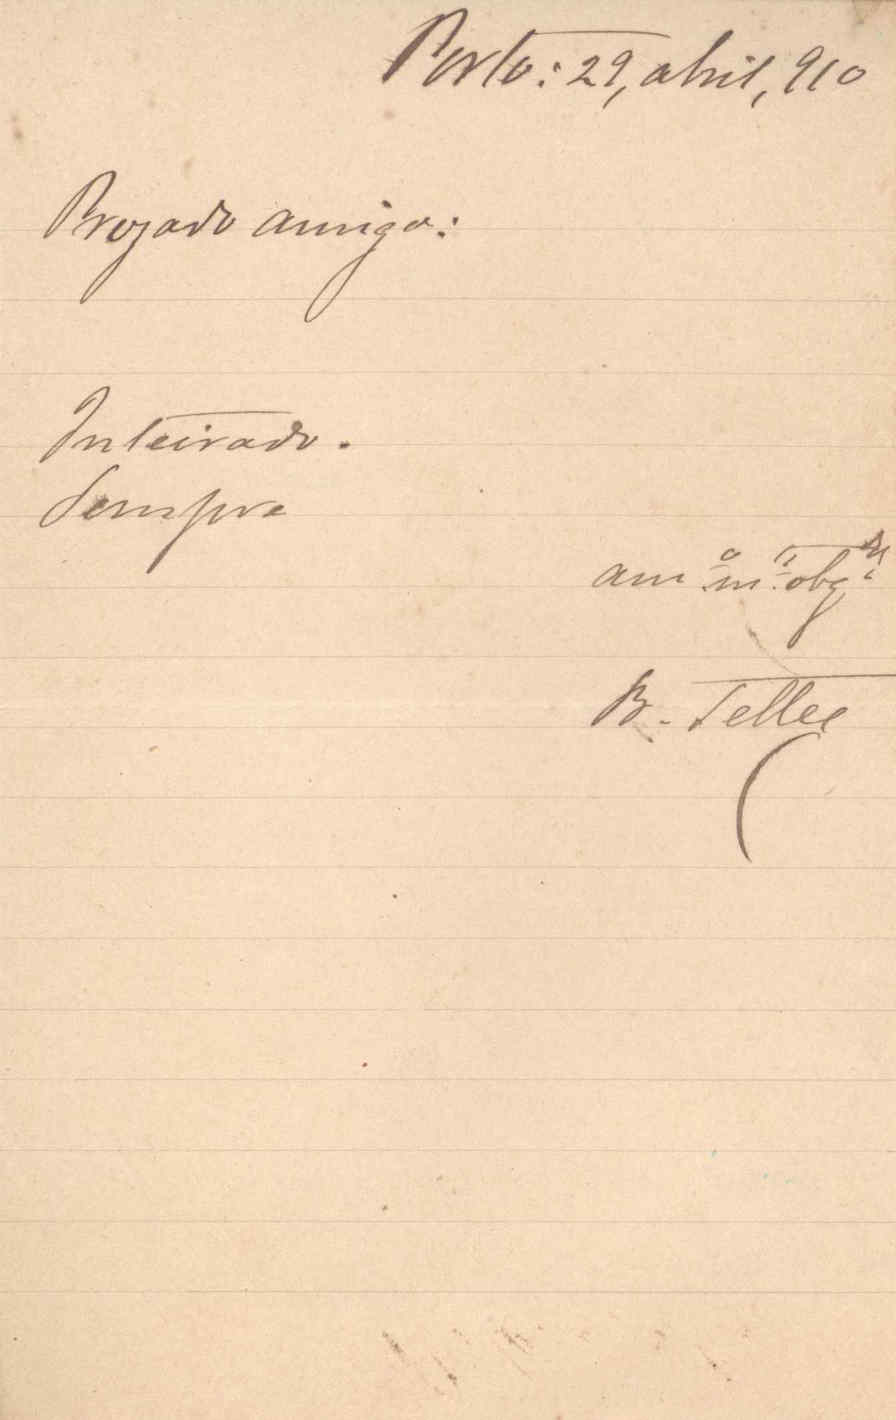 Porto: 29, abril, 910
Prezado amigo:
Inteirado.
Sempre
am.º m.to obg.do
B. Telles